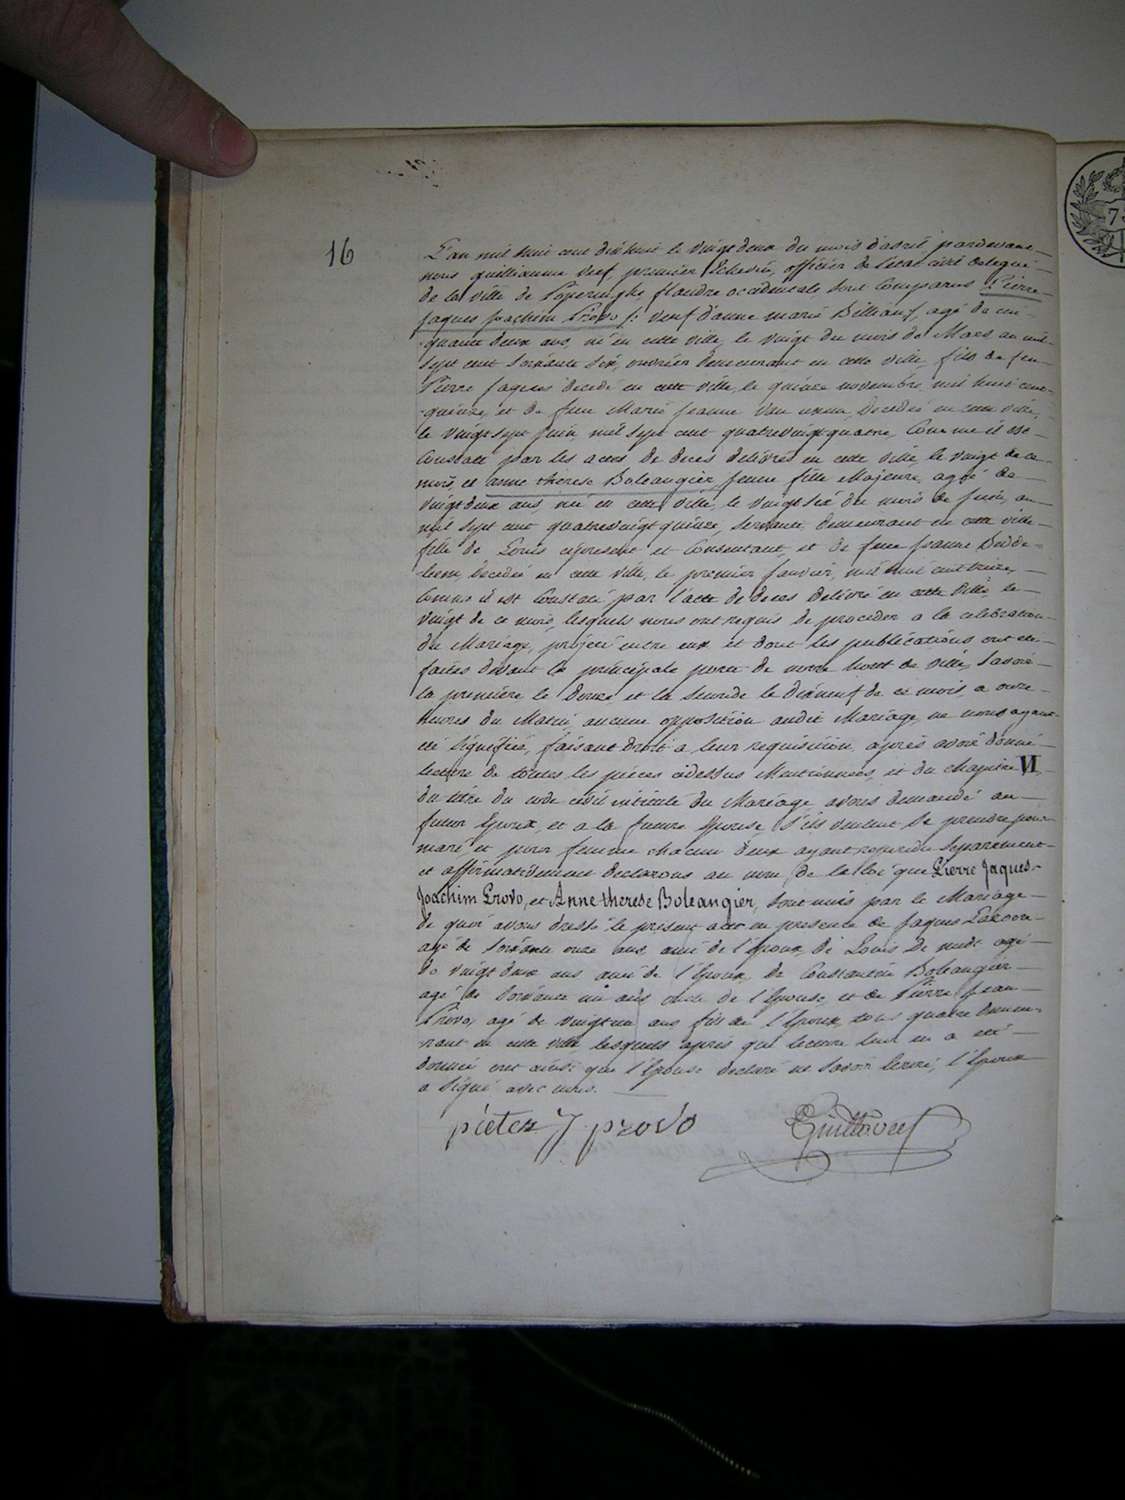 16
L'an mil huit cent dixhuit le vingt deux du mois d'avril pardevant
nous guillaume Vref, premier Echevin, officier de l'état civil delegué
de la ville de Poperinghe flandre occidentale sont Comparus Pierre
Jaques Joachim Provo /: veuf d'anne marie Billiau /, agé de cin-
quante deux ans, né en cette ville, le vingt du mois de Mars an mil
sept cent soixante six, ouvrier demeurant en cette ville, fils de feu
Pierre Jaques decedé en cette ville, le quinze novembre mil huit cent
quinze, et de feue Marie Jeanne Van Decedée en cette ville,
le vingt sept Juin mil sept cent quatrevingt quatre, Comme il est
Constaté par les actes de deces delivrés en cette ville le vingt de ce
mois, et anne therese Boleangier, jeune fille Majeure, agée de
vingt deux ans, née en cette ville, le vingt six du mois de Juin, an
mil sept cent quatrevingt quinze, servante demeurant en cette ville
fille de Louis ciprésent et Consentant, et de feue Jeanne
decedée en cette ville, le premier Janvier, mil huit cent treize,
Comme il est Constaté par l'acte de deces delivré en cette ville le
vingt de ce mois, lesquels nous ont requis de proceder a la celebration
du Mariage, projeté entre eux et dont les publications ont été
faites devant la principale porte de notre hotel de ville, Savoir
la premiere le douze et la seconde le dixneuf de ce mois a onze
heures du Matin aucune opposition audit Mariage ne nous ayant
été signifiée, faisant droit a leur requisition, après avoir donné
lecture de toutes les pièces cidessus Mentionnées, et du chapitre VI
du titre du code civil intitulé du Mariage avons demandé au
futur Epoux, et a la future Epouse, S'ils veulent se prendre pour
mari et pour femme chacun d'eux ayant repondu Separement
et affirmativement declarons au nom de la loi que Pierre Jaques
Joachim Provo, et Anne therese Boleangier, sont unis par le Mariage
de quoi avons dressé le present acte en presence de Jaques
agé de soixante onze ans, ami de l'Epoux, de Louis De agé
de vingt deux ans ami de l'Epoux, de Constantin Boleangier
agé de soixante un ans oncle de l'Epouse, et de Pierre Jean
Provo, agé de vingt un ans fils de l'Epoux, tous quatre demeu-
rant en cette ville lesquels après que lecture leur en a été
donnée ont ainsi que l'Epouse declaré ne savoir écrire, l'Epoux
a signé avec nous.
pieter J provo
Guill Vref